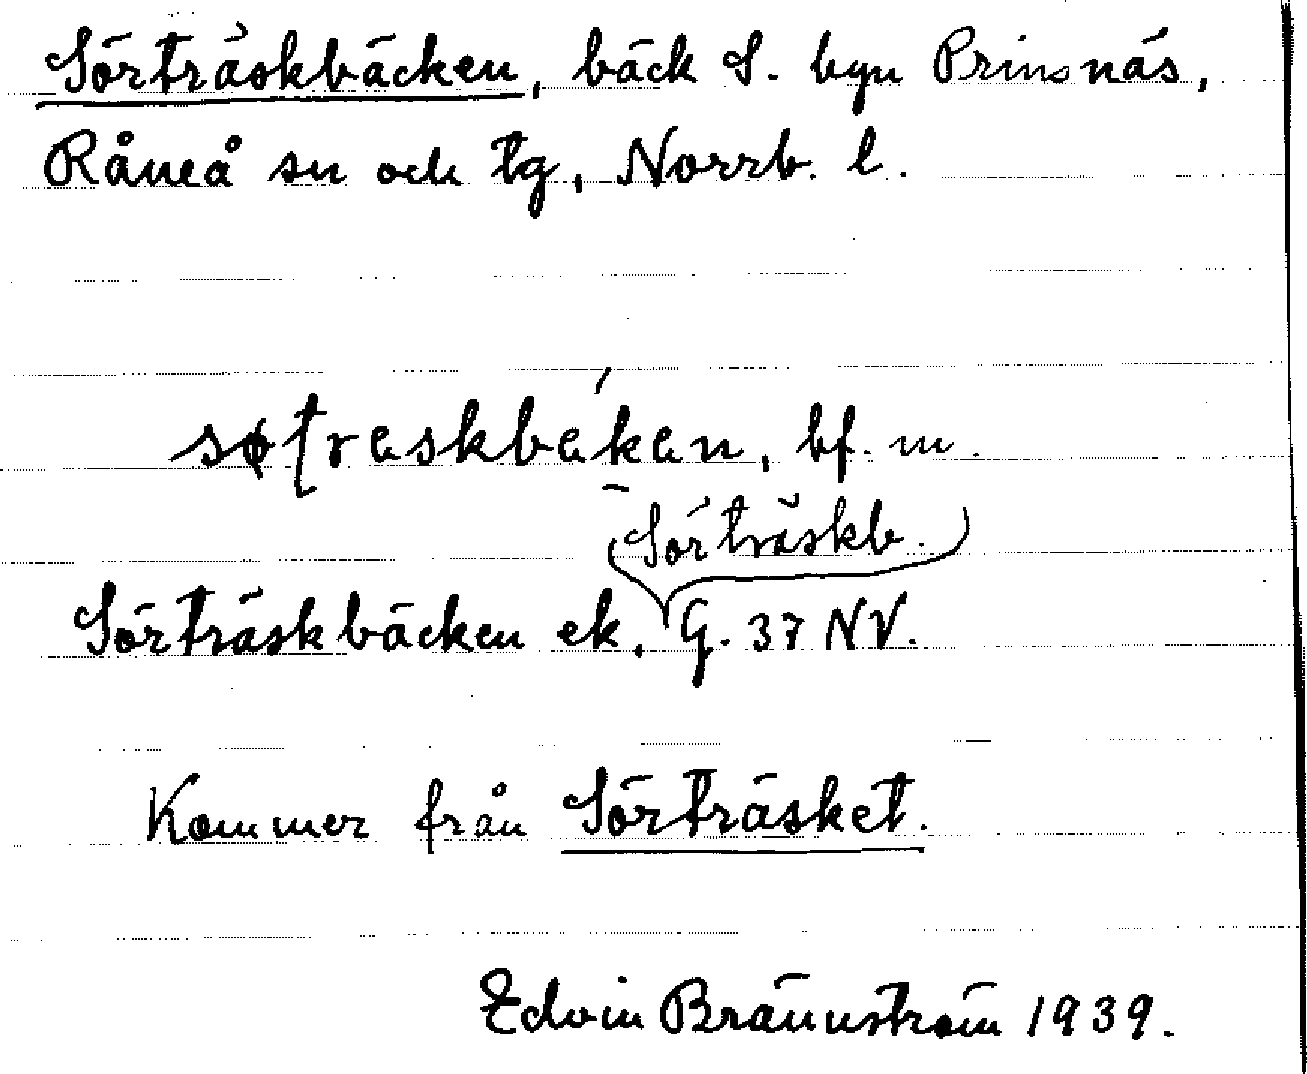 Sörträskbäcken, bäck S. byn Prinsnäs,
Råneå sn och tg, Norrb. l.
bf. m.
(Sörträskb.)
Sörträskbäcken ek. G. 37 NV.
Kommer från Sörträsket.
Edvin Brännström 1939.